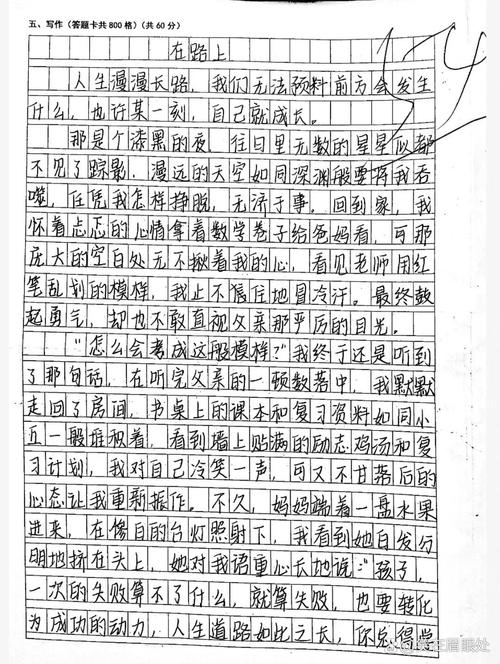 五、写作（答题卡共800格）（共60分）
在路上
人生漫漫长路，我们无法预料前方会发生
什么，也许某一刻，自己就成长。
那是个漆黑的夜，往日里无数的星星似都
不见了踪影，漫远的天空如同深渊般要将我吞
噬，任凭我怎样挣脱，无济于事。回到家，我
怀着忐忑的心情拿着数学卷子给爸妈看，可那
庞大的空白处无不揪着我的心，看见老师用红
笔乱划的模样，我止不住地冒冷汗。最终鼓
起勇气，却也不敢直视父亲那严厉的目光。
"怎么会考成这般模样？"我终于还是听到
了那句话，在听完父亲的一顿数落中，我默默
走回了房间，书桌上的课本和复习资料如同小
五一般堆积着，看到墙上贴满的励志鸡汤和复
习计划，我对自己冷笑一声，可又不甘落后的
心态让我重新振作。不久，妈妈端着一盘水果
进来，在惨白的台灯照射下，我看到她白发分
明地挤在头上，她对我语重心长地说："孩子，
一次的失败算不了什么，就算失败，也要转化
为成功的动力，人生道路如此之长，你总得学